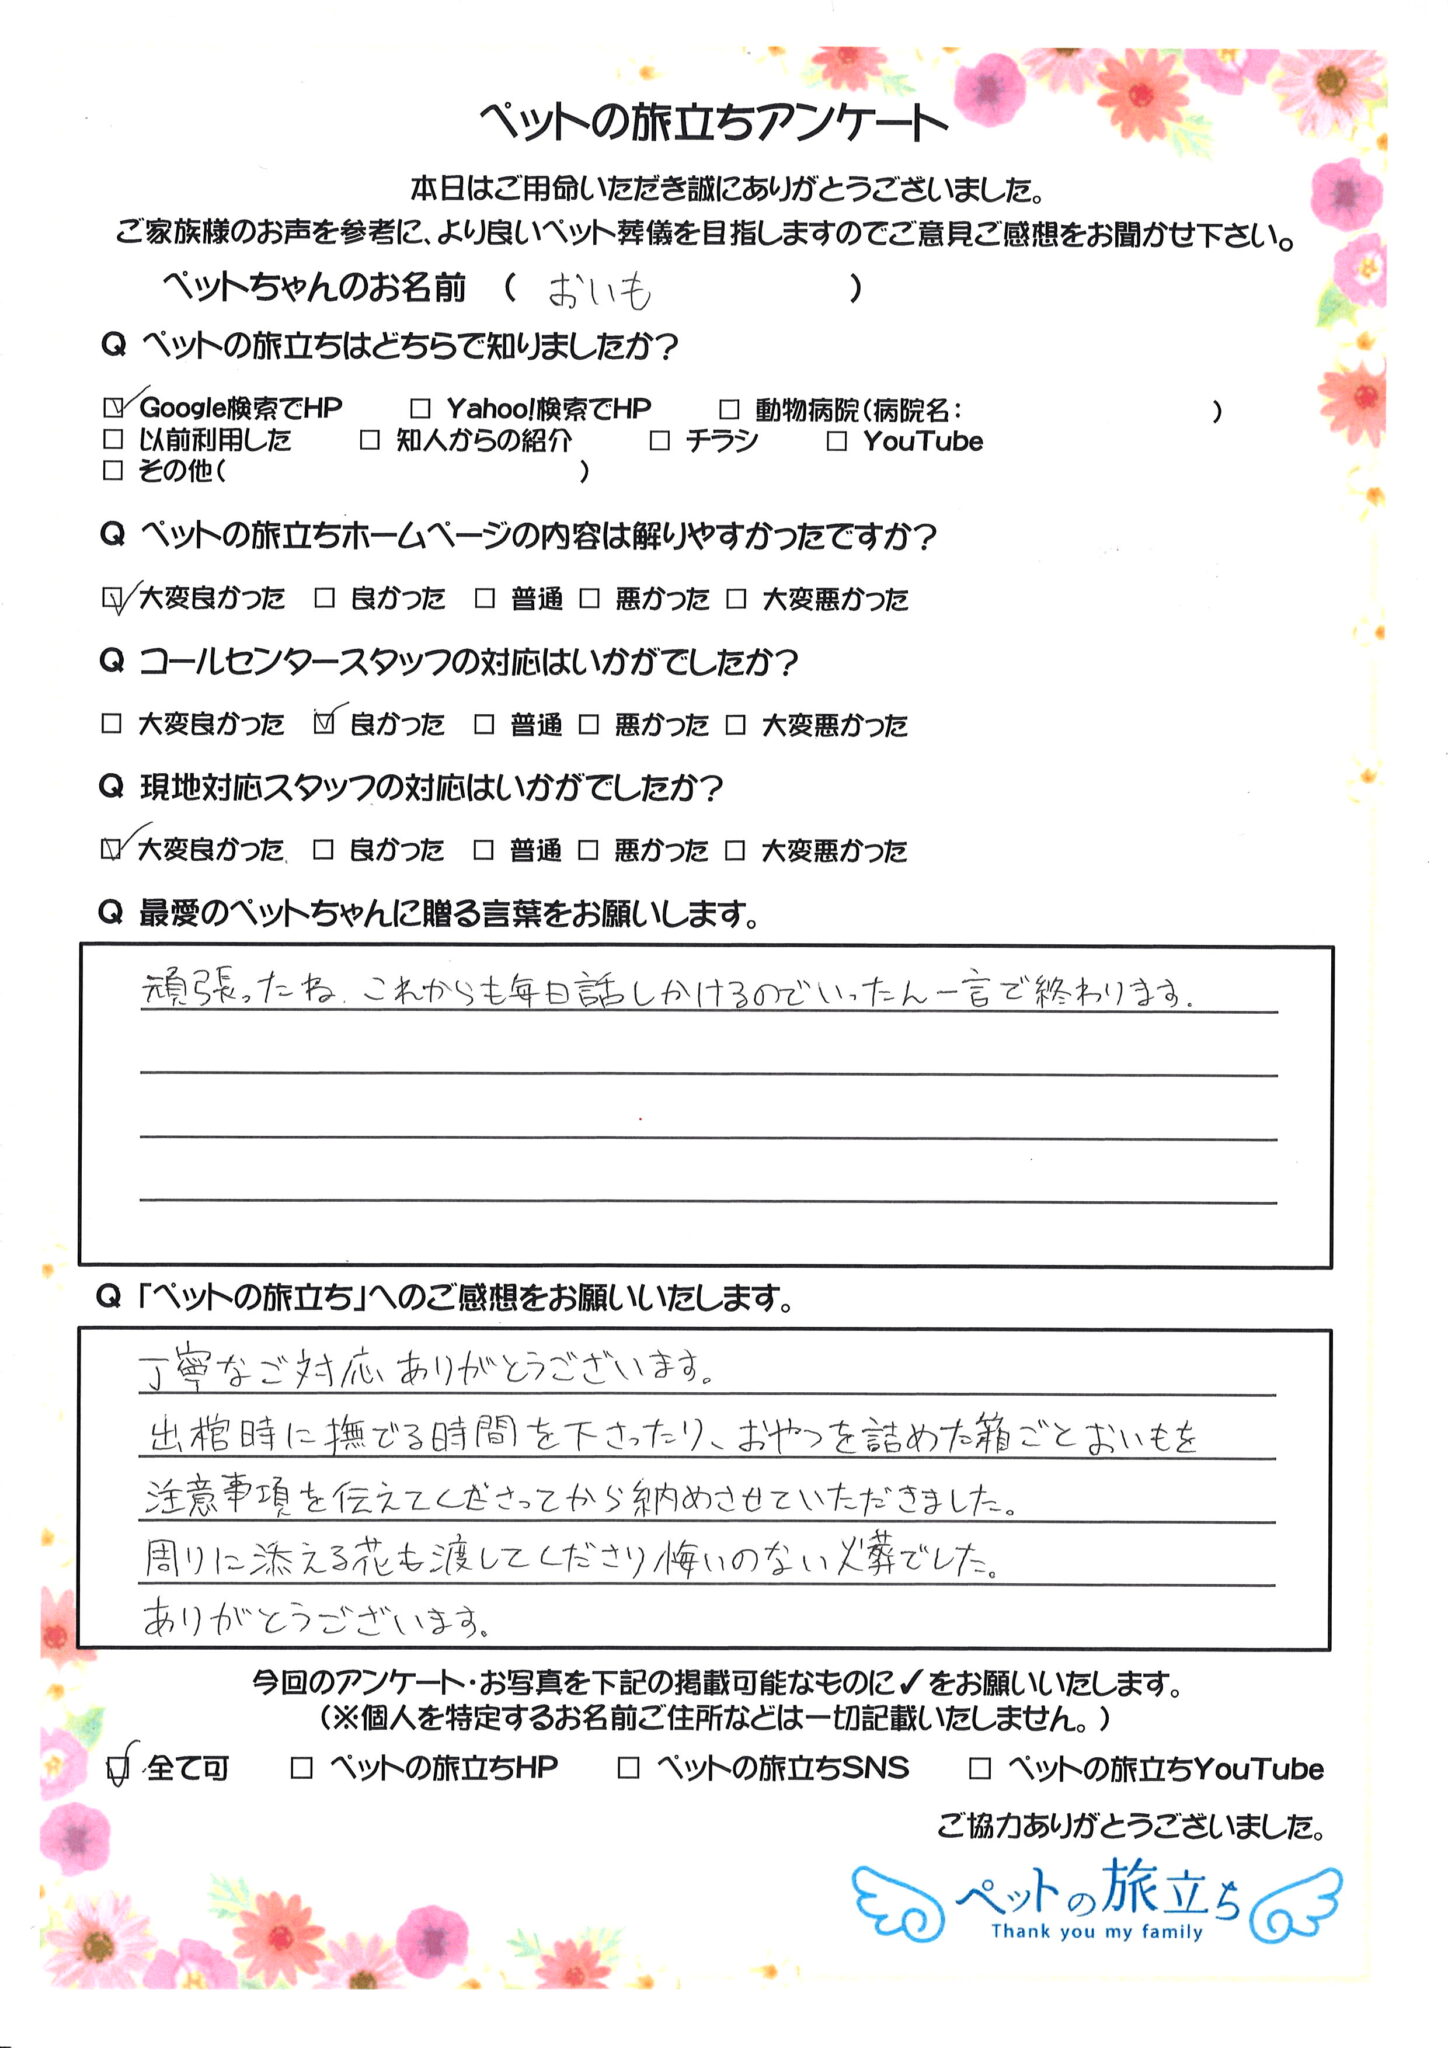 ペットの旅立ちアンケート
本日はご用命いただき誠にありがとうございました。
ご家族様のお声を参考に、より良いペット葬儀を目指しますのでご意見ご感想をお聞かせ下さい。
ペットちゃんのお名前 ( おいも )
Q ペットの旅立ちはどちらで知りましたか?
☑ Google検索でHP □ Yahoo!検索でHP □ 動物病院(病院名: )
□ 以前利用した □ 知人からの紹介 □ チラシ □ YouTube
□ その他( )
Q ペットの旅立ちホームページの内容は解りやすかったですか?
☑ 大変良かった □ 良かった □ 普通 □ 悪かった □ 大変悪かった
Q コールセンタースタッフの対応はいかがでしたか?
□ 大変良かった ☑ 良かった □ 普通 □ 悪かった □ 大変悪かった
Q 現地対応スタッフの対応はいかがでしたか?
☑ 大変良かった □ 良かった □ 普通 □ 悪かった □ 大変悪かった
Q 最愛のペットちゃんに贈る言葉をお願いします。
頑張ったね.これからも毎日話しかけるのでいったん一言で終わります.
Q 「ペットの旅立ち」へのご感想をお願いいたします。
丁寧なご対応ありがとうございます。
出棺時に撫でる時間を下さったり、おやつを詰めた箱ごとおいもを
注意事項を伝えてくださってから納めさせていただきました。
周りに添える花も渡してくださり悔いのない火葬でした。
ありがとうございます。
今回のアンケート・お写真を下記の掲載可能なものに✓をお願いいたします。
(※個人を特定するお名前ご住所などは一切記載いたしません。)
☑ 全て可 □ ペットの旅立ちHP □ ペットの旅立ちSNS □ ペットの旅立ちYouTube
ご協力ありがとうございました。
ペットの旅立ち
Thank you my family